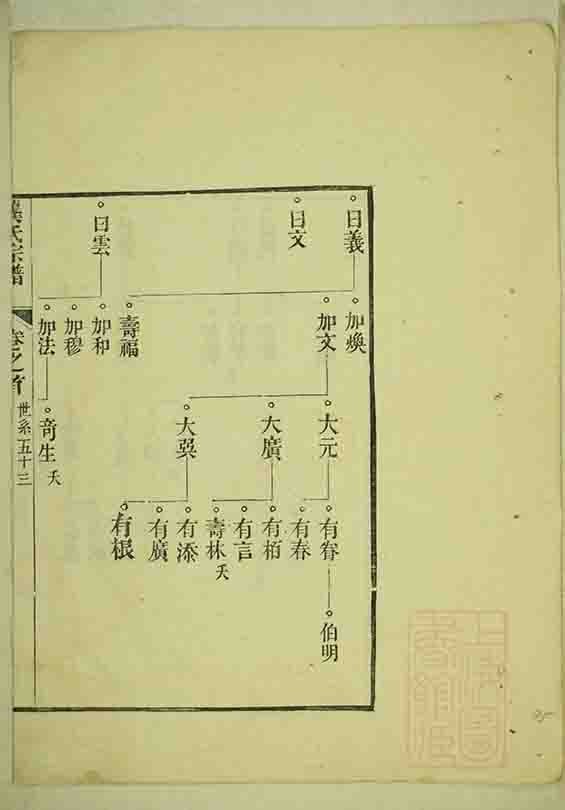 日義
日文
日雲
加煥
加文
壽福
加和
加穆
加法
大元
大廣
大異
竒生 夭
有眷
有春
有栢
有言
壽林 夭
有添
有廣
有根
伯明
氏宗譜
卷之首
世系五十三